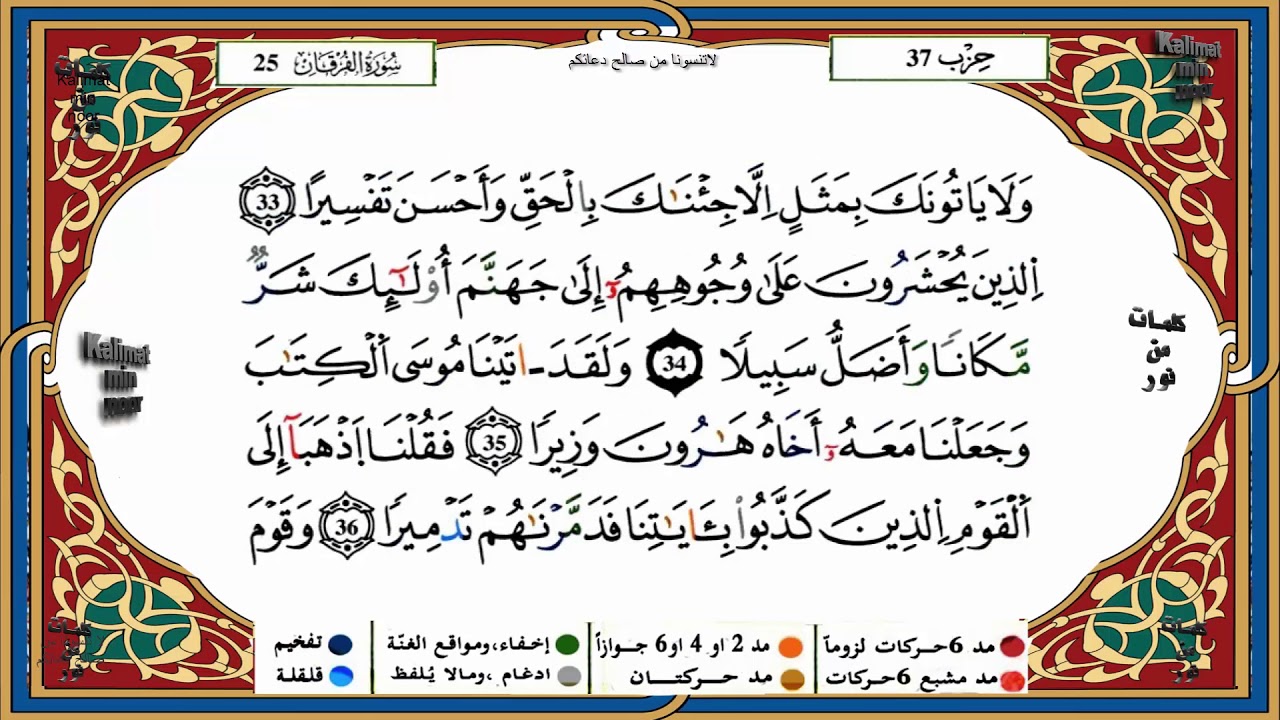 حِزْب 37
لاتنسونا من صالح دعائكم
سُورَةُ الفُرْقَان 25
Kalimat
min
noor
كلمات
من
نور
وَلَا يَاتُونَكَ بِمَثَلٍ اِلَّا جِئْنَٰكَ بِالْحَقِّ وَأَحْسَنَ تَفْسِيرًا 33
اِلذِينَ يُحْشَرُونَ عَلَىٰ وُجُوهِهِمُۥٓ إِلَىٰ جَهَنَّمَ أُوْلَٰٓئِكَ شَرٌّ
مَّكَانًا وَأَضَلُّ سَبِيلًا 34 وَلَقَدَ ـ اتَيْنَا مُوسَى اَلْكِتَٰبَ
وَجَعَلْنَا مَعَهُۥٓ أَخَاهُ هَٰرُونَ وَزِيرًا 35 فَقُلْنَا اَذْهَبَآ إِلَى
اَلْقَوْمِ اِلذِينَ كَذَّبُواْ بِـَٔايَٰتِنَا فَدَمَّرْنَٰهُمْ تَدْمِيرًا 36 وَقَوْمَ
Kalimat
min
noor
كلمات
من
نور
مد 6 حركات لزوماً
مد 2 او 4 او 6 جوازاً
إخفاء، ومواقع الغنّة
تفخيم
مد مشبع 6 حركات
مد حركتان
ادغام ، ومالا يُلفظ
قلقلة